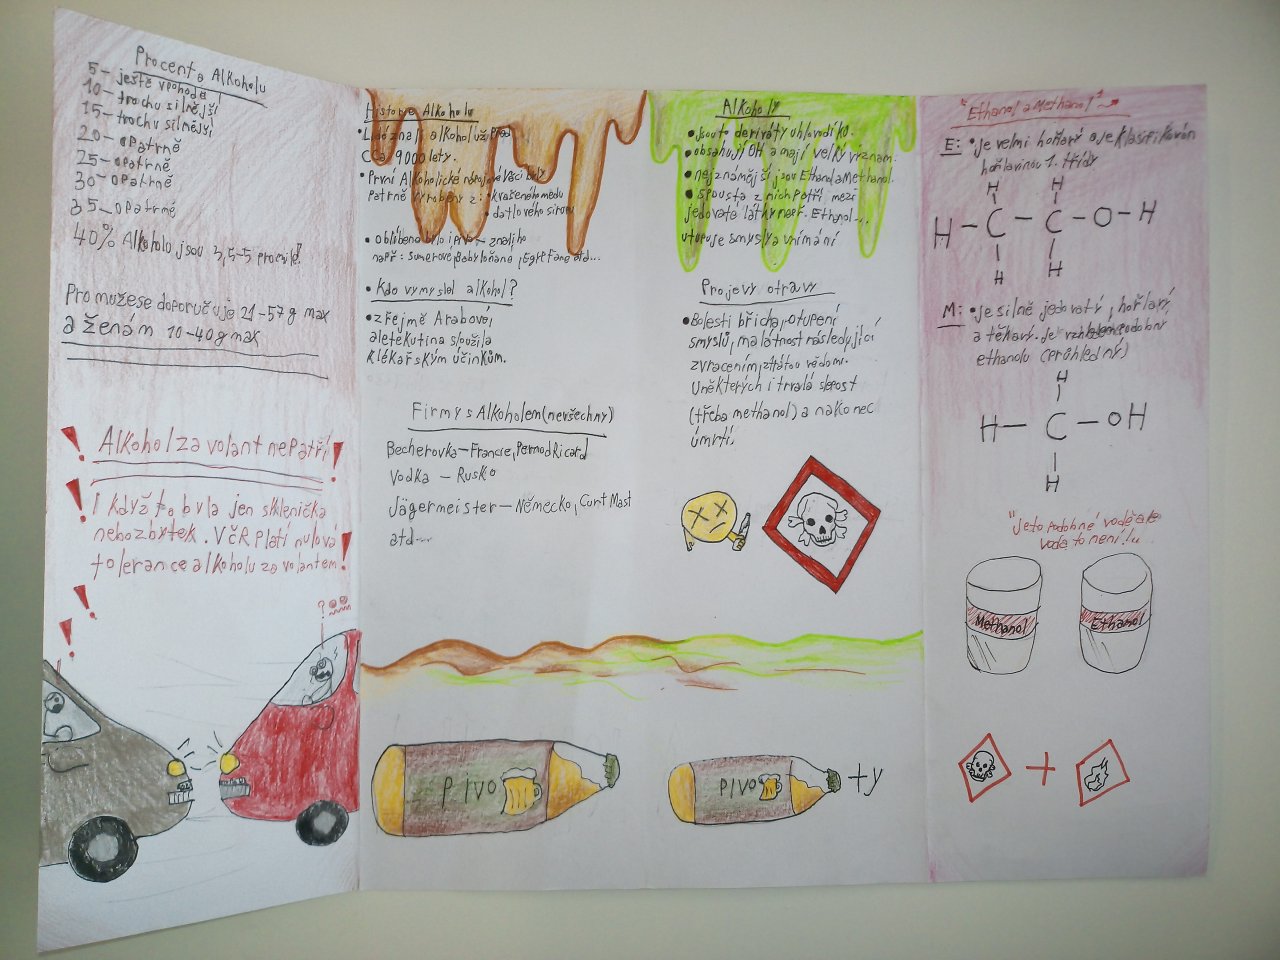 Procenta Alkoholu
5 – ještě vpohodě
10 – trochu silnější
15 – trochu silnější
20 – opatrně
25 – opatrně
30 – opatrně
35 – opatrně
40% Alkoholu jsou 3,5–5 promile!
Pro mužese doporučuje 21–57g max
a ženám 10–40g max
Alkohol za volant nepatří!
I když to byla jen sklenička
nebozbytek. VČR platí nulová
tolerance alkoholu za volantem!
Historie Alkoholu
• Lidé znají alkohol už
Cca 9000 lety.
• První Alkoholické nápoje
patrně vyrobeny z: • kvašeného medu
• datlového sirupu
• oblíbeno bylo i pivo – znali ho
např: Sumerové, Babyloňané, Egypťané atd...
• Kdo vymyslel alkohol?
• zřejmě Arabové,
aletekutina sloužila
klékařským účinkům.
Firmy s Alkoholem (nevšechny)
Becherovka – Francie, Pernod Ricard
Vodka – Rusko
Jägermeister – Německo, Curt Mast
atd....
pivo
Alkoholy
• jsou to deriváty uhlovodíků.
• obsahují OH a mají velký význam.
• nejznámější jsou Ethanol a Methanol.
• spousta z nich patří mezi
jedovaté látky např. Ethanol...
utupuje smysly a vnímání
Projevy otravy
• Bolesti břicha, otupení
smyslů, malátnost následující
zvracením, ztrátou vědomí.
Uněkterých i trvalá slepost
(třeba methanol) a nakonec
úmrtí.
pivo +y
"Ethanol a Methanol"
E: • je velmi hořlavý a je klasifikován
hořlavinou 1. třídy
H H
H – C – C – O – H
H H
M: • je silně jedovatý, hořlavý,
a těkavý. Je vzhledem podobný
ethanolu (průhledný)
H
H – C – OH
H
"jeto podobné vodě ale
voda to není!"
Methanol Ethanol
+